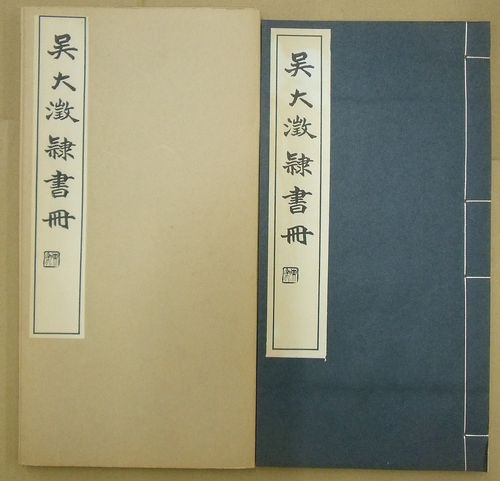 吴大澂隷書冊
吴大澂隷書冊